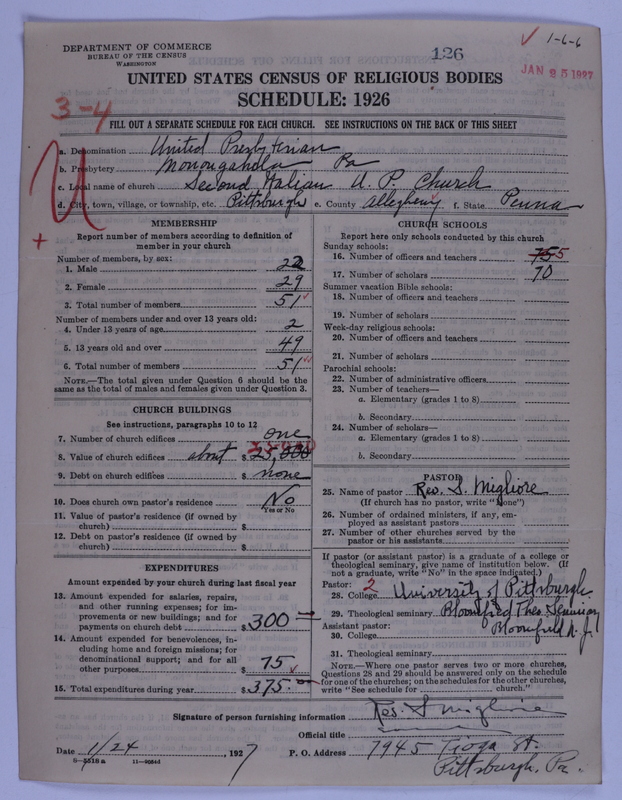 DEPARTMENT OF COMMERCE
BUREAU OF THE CENSUS
WASHINGTON
126
1-6-6
JAN 25 1927
UNITED STATES CENSUS OF RELIGIOUS BODIES
SCHEDULE: 1926
3-4
FILL OUT A SEPARATE SCHEDULE FOR EACH CHURCH. SEE INSTRUCTIONS ON THE BACK OF THIS SHEET
a. Denomination United Presbyterian
b. Presbytery Monongahela Pa
c. Local name of church Second Italian U. P. Church
d. City, town, village, or township, etc. Pittsburgh e. County Allegheny f. State Penna
MEMBERSHIP
Report number of members according to definition of
member in your church
Number of members, by sex:
1. Male 22
2. Female 29
3. Total number of members 51
Number of members under and over 13 years old:
4. Under 13 years of age 2
5. 13 years old and over 49
6. Total number of members 51
NOTE.—The total given under Question 6 should be the
same as the total of males and females given under Question 3.
CHURCH BUILDINGS
See instructions, paragraphs 10 to 12
7. Number of church edifices one
8. Value of church edifices about $ 25,000
9. Debt on church edifices $ none
10. Does church own pastor's residence No
Yes or No
11. Value of pastor's residence (if owned by
church) $
12. Debt on pastor's residence (if owned by
church) $
EXPENDITURES
Amount expended by your church during last fiscal year
13. Amount expended for salaries, repairs,
and other running expenses; for im-
provements or new buildings; and for
payments on church debt $ 300
14. Amount expended for benevolences, in-
cluding home and foreign missions; for
denominational support; and for all
other purposes $ 75
15. Total expenditures during year $ 375.
CHURCH SCHOOLS
Report here only schools conducted by this church
Sunday schools:
16. Number of officers and teachers 15 5
17. Number of scholars 70
Summer vacation Bible schools:
18. Number of officers and teachers
19. Number of scholars
Week-day religious schools:
20. Number of officers and teachers
21. Number of scholars
Parochial schools:
22. Number of administrative officers
23. Number of teachers—
a. Elementary (grades 1 to 8)
b. Secondary
24. Number of scholars—
a. Elementary (grades 1 to 8)
b. Secondary
PASTOR
25. Name of pastor Rev. S. Migliore
(If church has no pastor, write "None")
26. Number of ordained ministers, if any, em-
ployed as assistant pastors
27. Number of other churches served by the
pastor or his assistants
If pastor (or assistant pastor) is a graduate of a college or
theological seminary, give name of institution below. (If
not a graduate, write "No" in the space indicated.)
Pastor: 2
28. College University of Pittsburgh
29. Theological seminary Bloomfield Theo. Seminary
Assistant pastor: Bloomfield N. J.
30. College
31. Theological seminary
NOTE.—Where one pastor serves two or more churches,
Questions 28 and 29 should be answered only on the schedule
for one of the churches; on the schedules for the other churches,
write "See schedule for church."
Signature of person furnishing information Rev. S Migliore
Official title
Date 1/24, 1927 P. O. Address 7945 Tioga St.
8-3518a 11-9034d Pittsburgh, Pa.